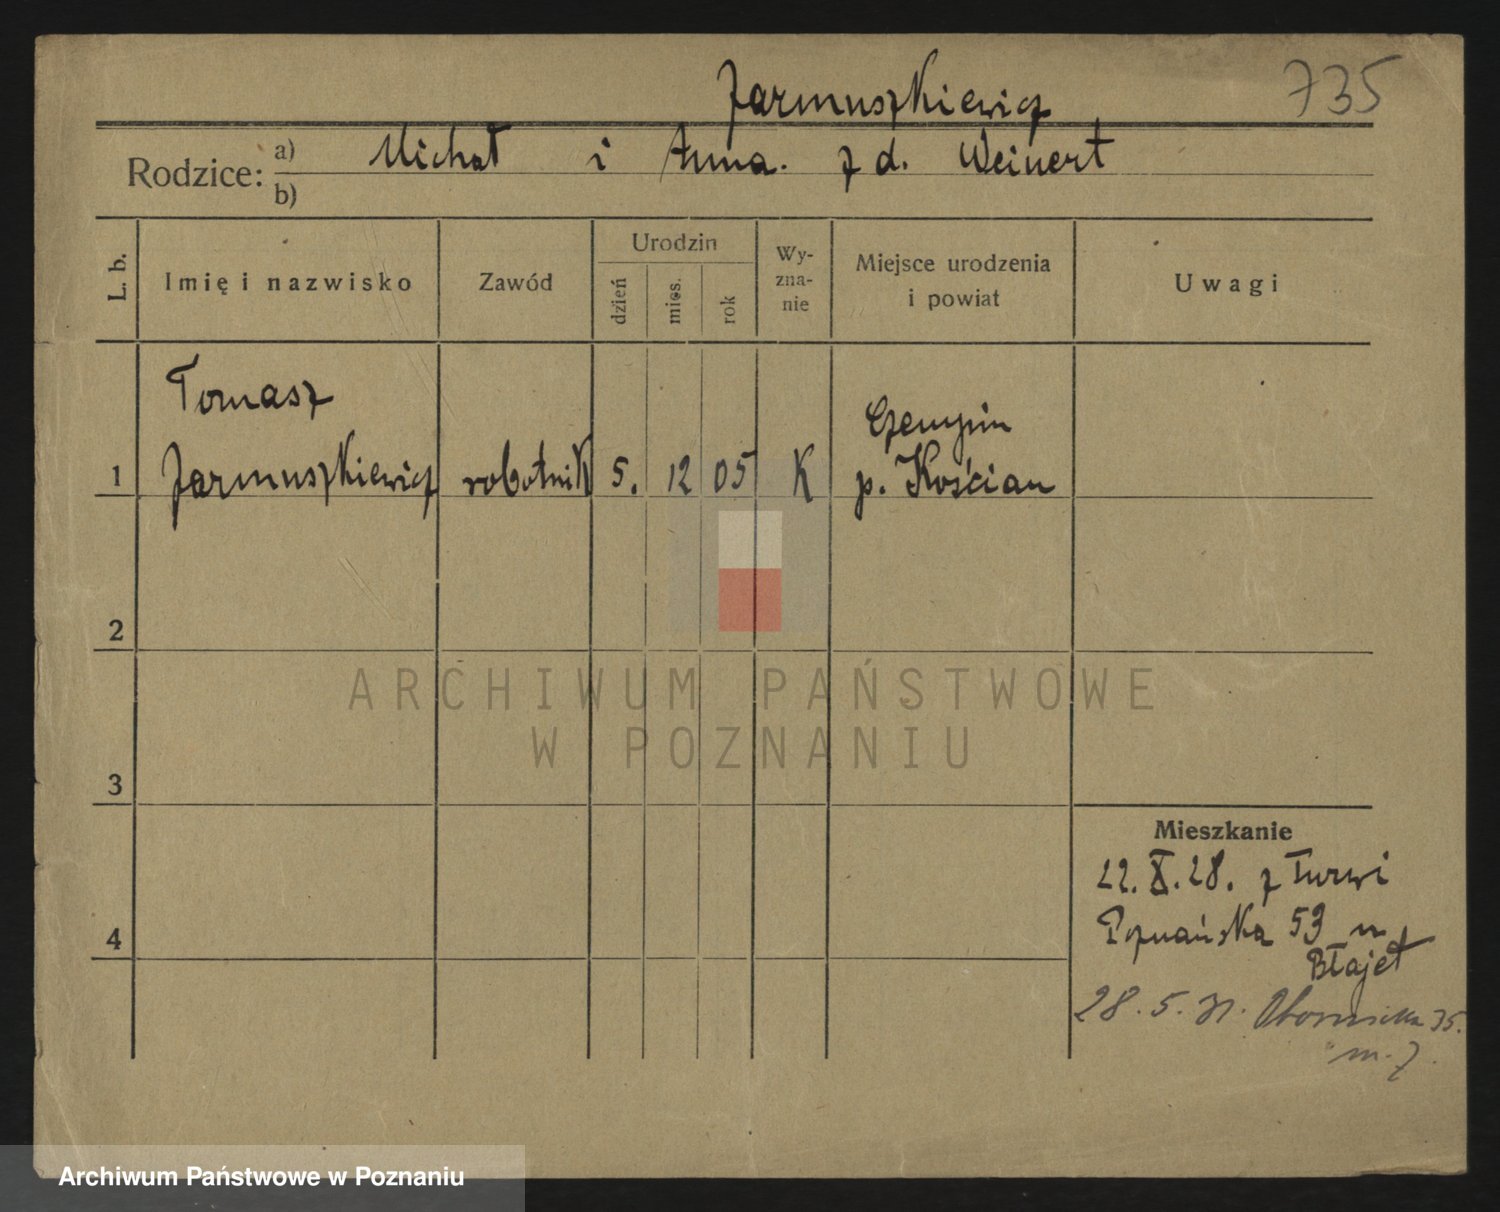 Jarmuszkiewicz 735
Rodzice: a) Michał i Anna. z d. Weinert
b)
L. b. Imię i nazwisko Zawód Urodzin dzień mies. rok Wy-zna-nie Miejsce urodzenia i powiat Uwagi
Tomasz Czempiń
1 Jarmuszkiewicz robotnik 5. 12 05 K p. Kościan
2
ARCHIWUM PAŃSTWOWE
W POZNANIU
3
Mieszkanie
22. X. 28. z Turwi
4 Poznańska 53 u
Błajet
28. 5. 31. Obornicka 35.
m. 7.
Archiwum Państwowe w Poznaniu